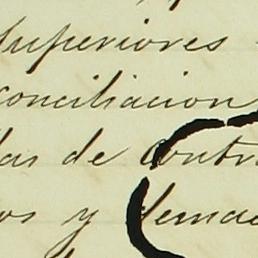 Superiores
conciliacion
das de contr
os y demas